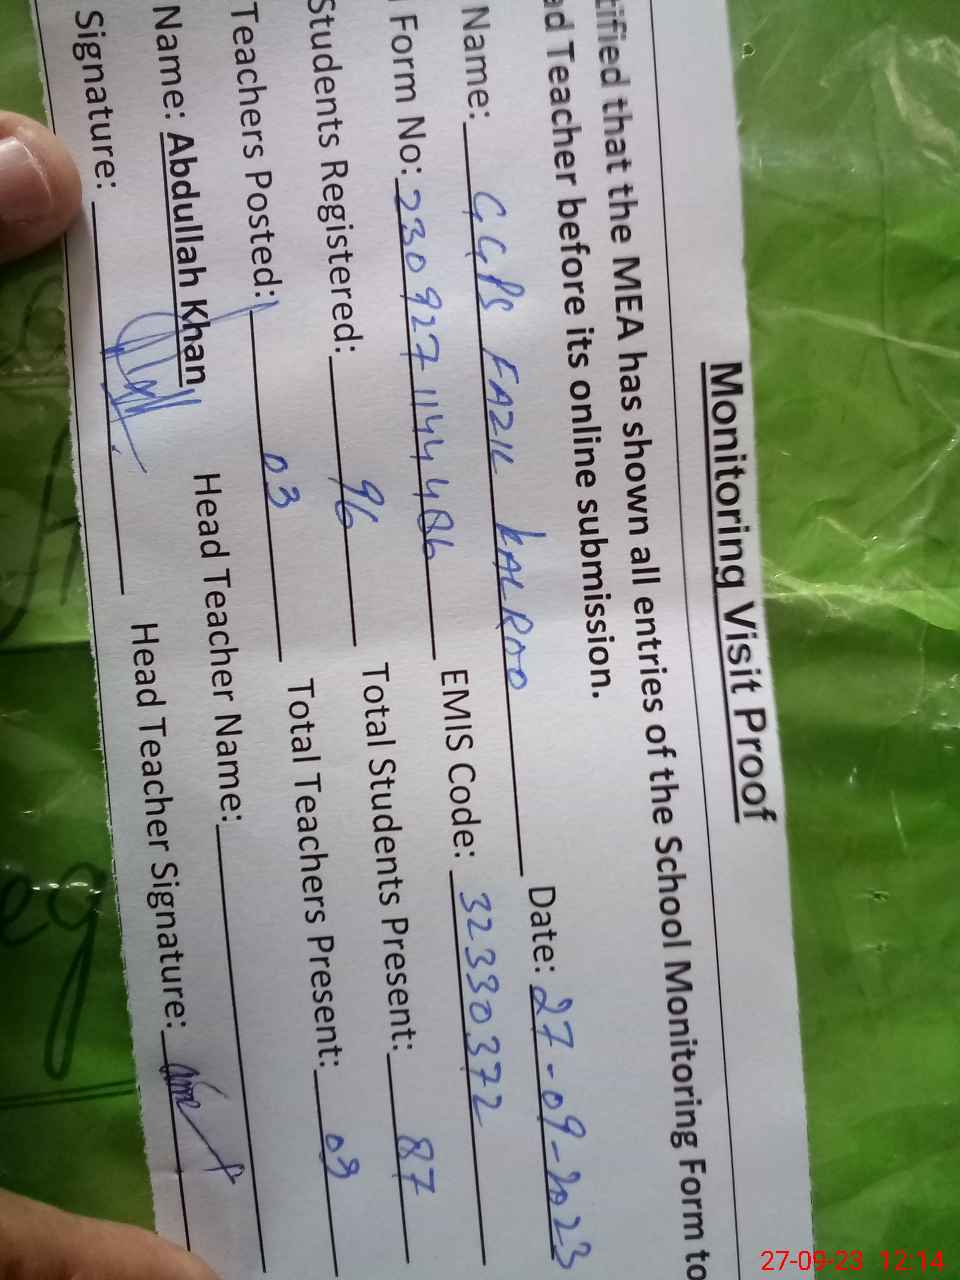 Monitoring Visit Proof
tified that the MEA has shown all entries of the School Monitoring Form to
ad Teacher before its online submission.
Name: GGPS FAZIL KALROO Date: 27-09-2023
Form No: 230927114448б EMIS Code: 32330372
Students Registered: 96 Total Students Present: 87
Teachers Posted: 03 Total Teachers Present: 03
Name: Abdullah Khan Head Teacher Name:
Signature: Head Teacher Signature:
27-09-23 12:14